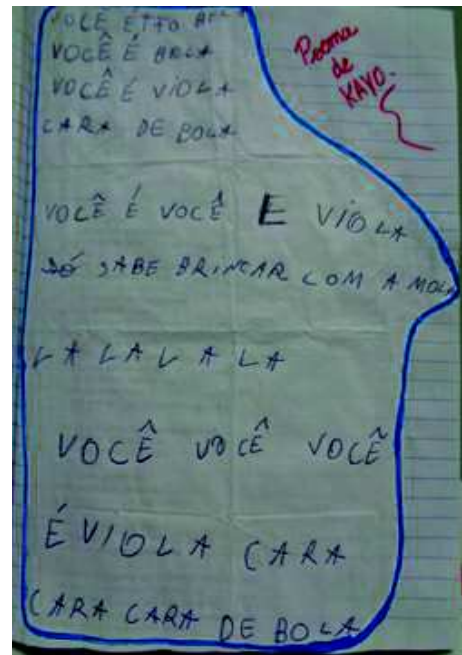 VOCÊ É TÃO BELA
VOCÊ É BELA
VOCÊ É VIOLA
CARA DE BOLA
VOCÊ É VOCÊ E VIOLA
SÓ SABE BRINCAR COM A MOLA
LA LA LA LA
VOCÊ VOCÊ VOCÊ
É VIOLA CARA
CARA CARA DE BOLA
Poema
de
KAYO.